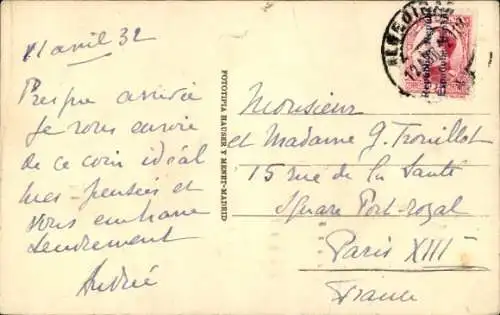 11 avril 32
Presque arrivée
Je vous envoie
de ce coin idéal
mes pensées et
vous embrasse
tendrement
Andrée
FOTOTIPIA HAUSER Y MENET.-MADRID
Monsieur
et Madame G. Trouillot
15 rue de la Santé
Square Port-royal
Paris XIII
France